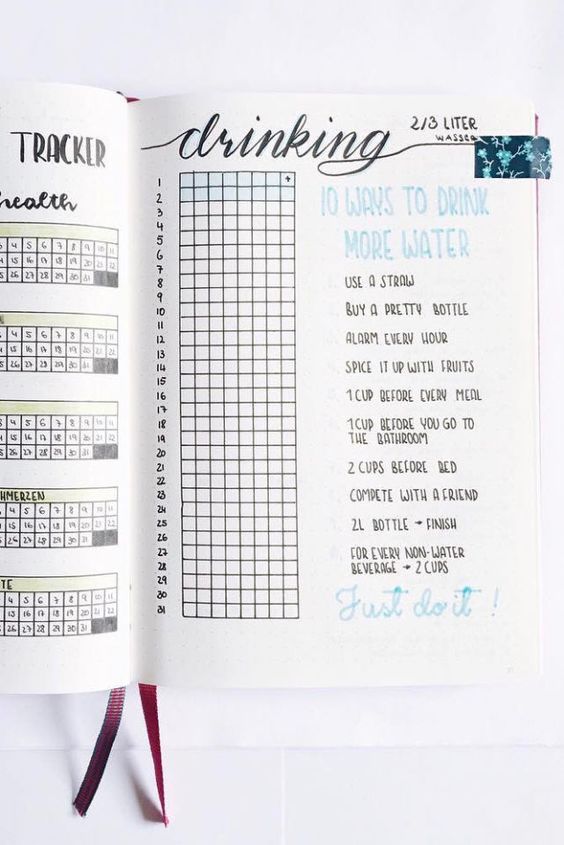 TRACKER
health
4 5 6 7 8 9 10 11
15 16 17 18 19 20 21 22
26 27 28 29 30 31
4 5 6 7 8 9 10 11
15 16 17 18 19 20 21 22
26 27 28 29 30 31
4 5 6 7 8 9 10 11
15 16 17 18 19 20 21 22
26 27 28 29 30 31
HMERZEN
4 5 6 7 8 9 10 11
15 16 17 18 19 20 21 22
26 27 28 29 30 31
TE
4 5 6 7 8 9 10 11
15 16 17 18 19 20 21 22
26 27 28 29 30 31
drinking
2/3 LITER
WASSER
1 +
2
3
4
5
6
7
8
9
10
11
12
13
14
15
16
17
18
19
20
21
22
23
24
25
26
27
28
29
30
31
10 WAYS TO DRINK
MORE WATER
USE A STRAW
BUY A PRETTY BOTTLE
ALARM EVERY HOUR
SPICE IT UP WITH FRUITS
1 CUP BEFORE EVERY MEAL
1 CUP BEFORE YOU GO TO
THE BATHROOM
2 CUPS BEFORE BED
COMPETE WITH A FRIEND
2L BOTTLE → FINISH
FOR EVERY NON-WATER
BEVERAGE → 2 CUPS
Just do it !